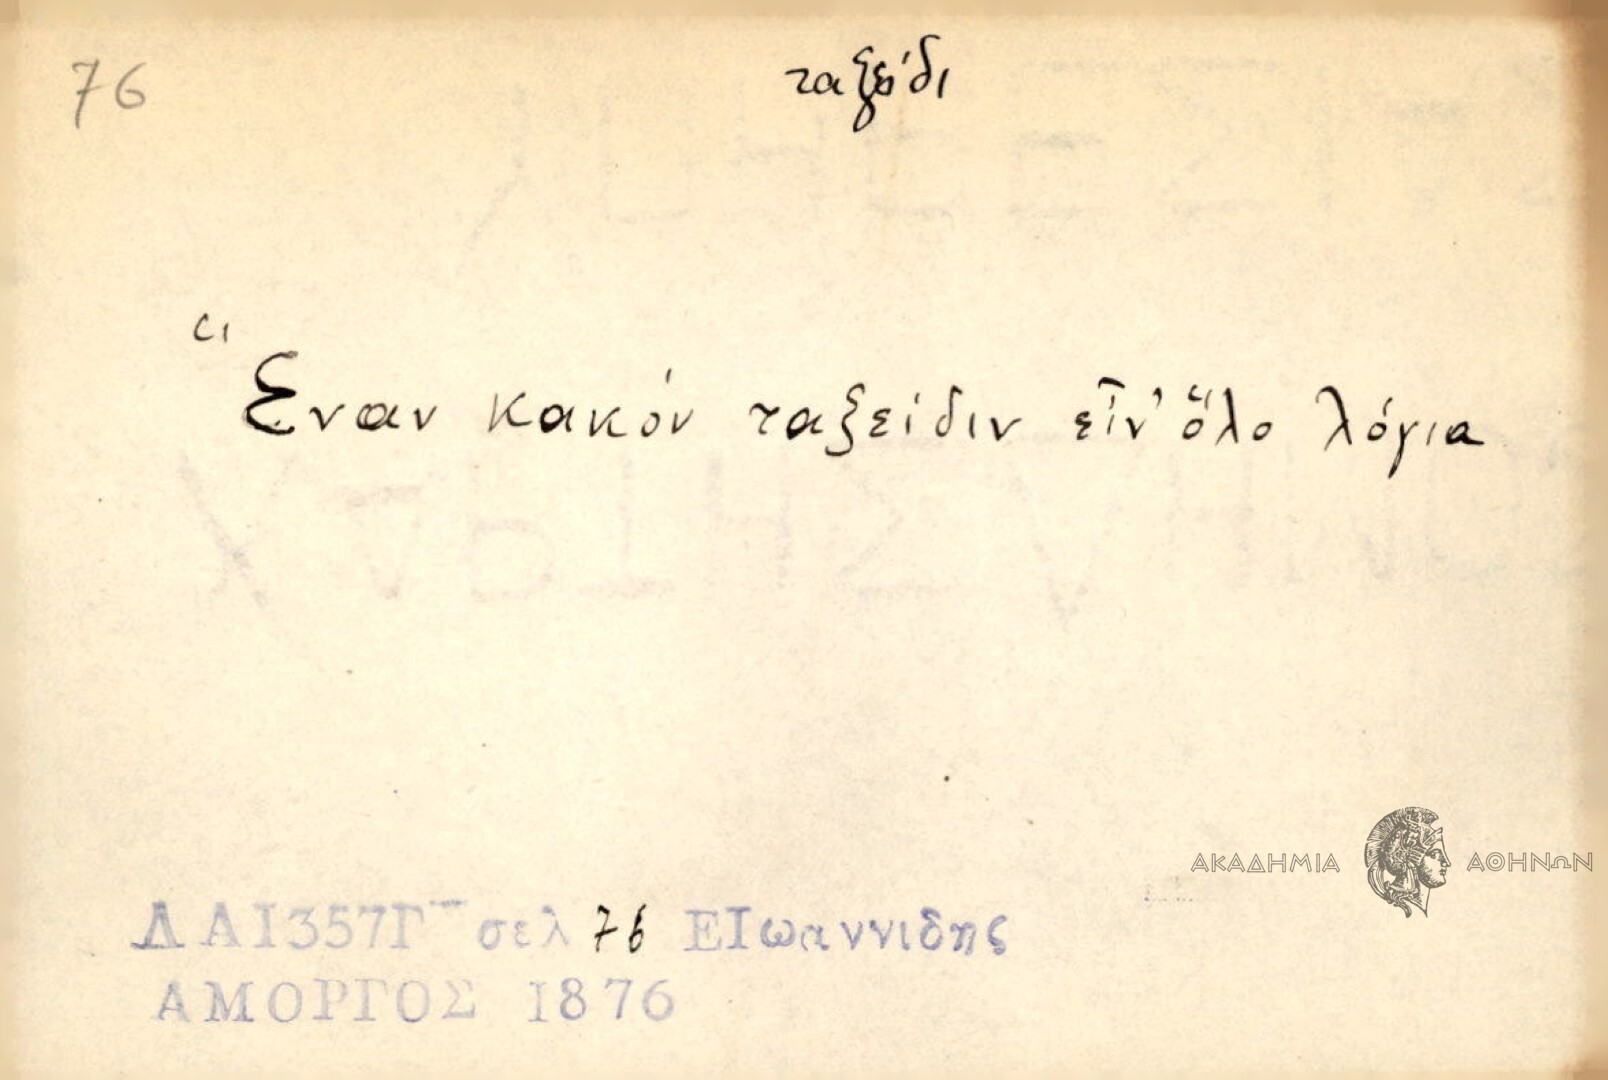 76
ταξείδι
Ἕναν κακόν ταξείδιν εἶν' ὅλο λόγια
ΑΚΑΔΗΜΙΑ ΑΘΗΝΩΝ
ΔΑ1357Γ σελ 76 ΕΙωαννιδης
ΑΜΟΡΓΟΣ 1876